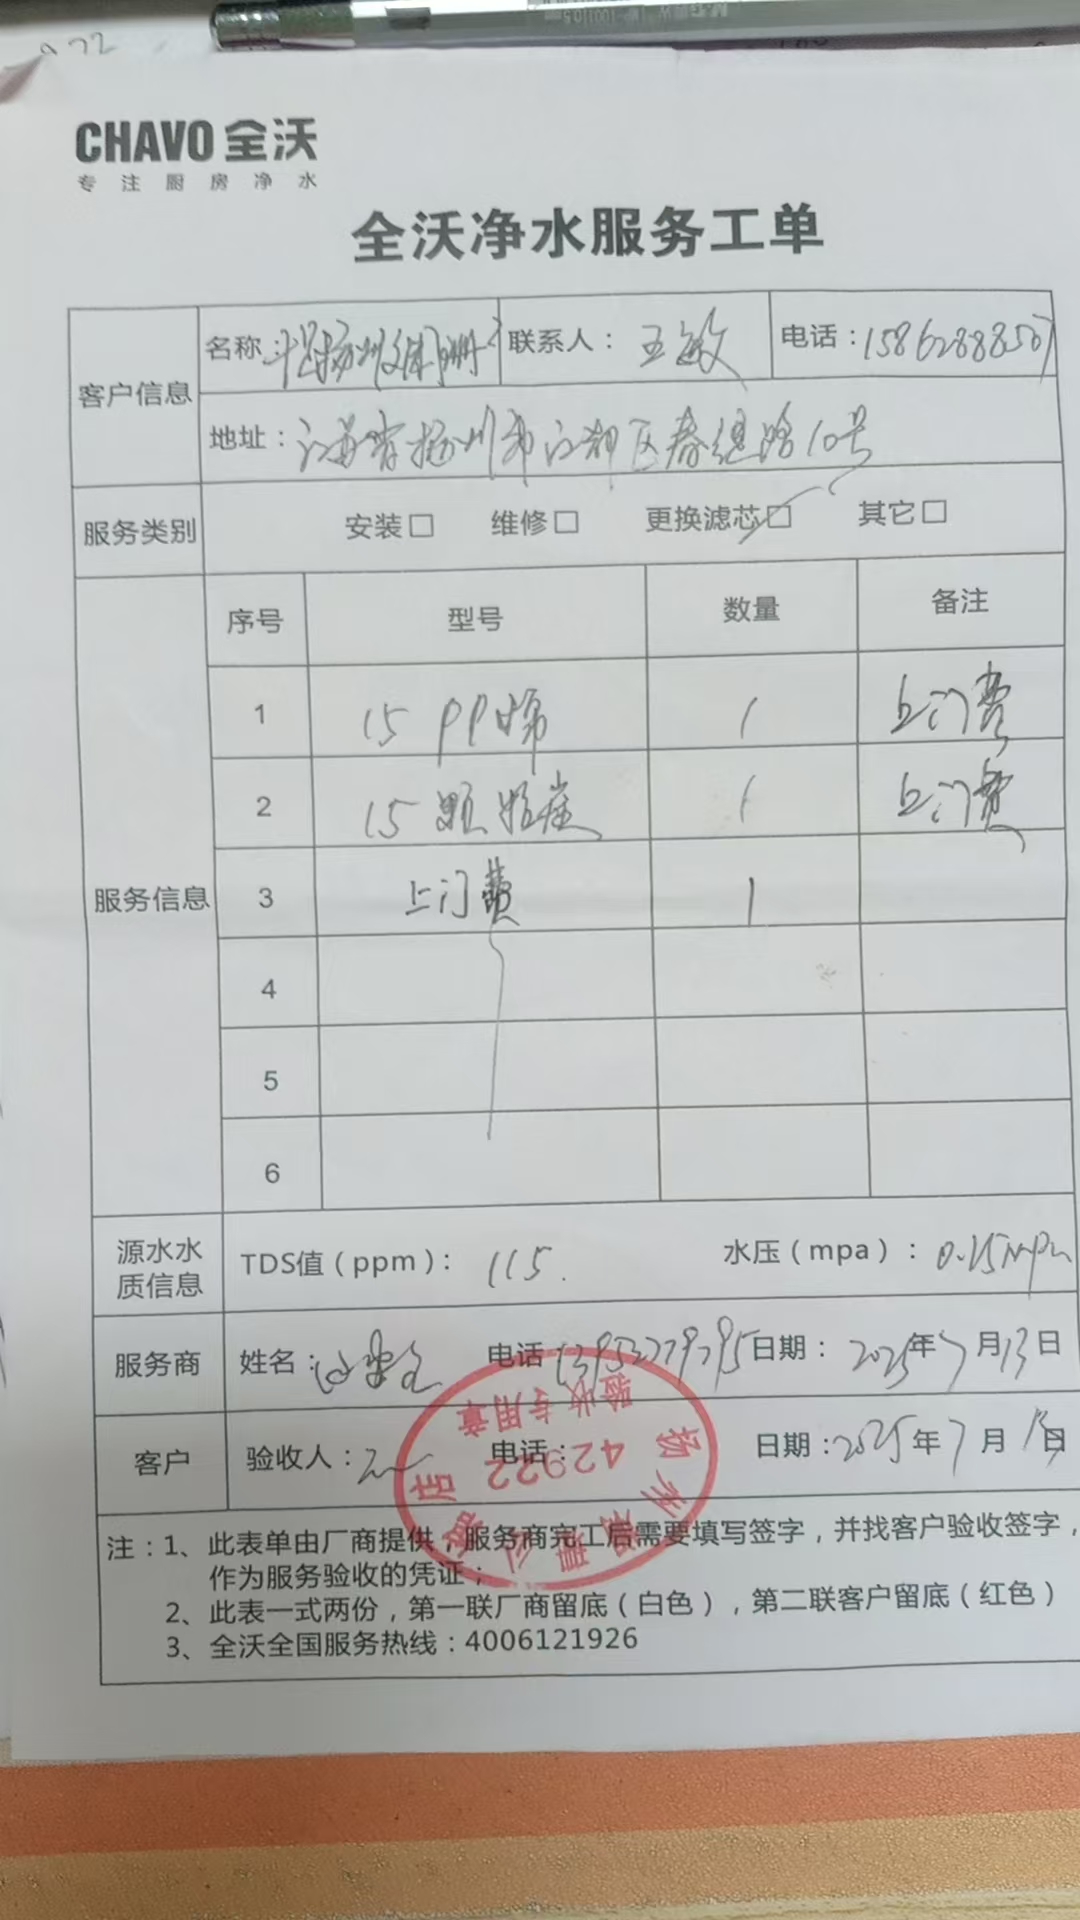 CHAVO 全沃
专注厨房净水
全沃净水服务工单
客户信息 名称: 联系人: 王敏 电话:
地址: 江苏省扬州市江都区春缇路10号
服务类别 安装□ 维修□ 更换滤芯□ 其它□
服务信息 序号 型号 数量 备注
1 15 PP棉 1 上门费
2 15 颗粒炭 1 上门费
3 上门费 1
4
5
6
源水水质信息 TDS值(ppm): 115. 水压(mpa): 0.25mpa
服务商 姓名: 电话 日期: 2025年7月13日
客户 验收人: 电话: 日期: 2025年7月13日
验收专用章
42922
注:1、此表单由厂商提供,服务商完工后需要填写签字,并找客户验收签字,
作为服务验收的凭证;
2、此表一式两份,第一联厂商留底(白色),第二联客户留底(红色)
3、全沃全国服务热线:4006121926